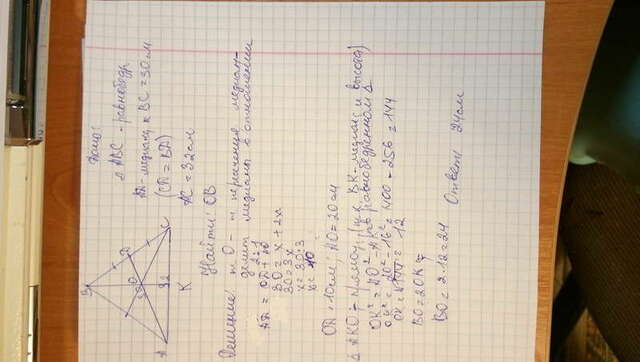 Дано:
Δ ABC - равнобедр.
AD - медиана к BC = 30 см
(CD = BD)
AC = 32 см
B
D
O
32
A
K
C
Найти: OB
Решение: т. O - т. пересечения медиан
делит медианы в отношении
2:1
AD = OD + AO
30 = x + 2x
30 = 3x
x = 30:3
x = 10
OD = 10 см; AO = 20 см
Δ AKO - прямоуг. (т.к. BK - медиана и высота)
в равнобедренном Δ
OK² = AO² - AK²
OK² = 20² - 16² = 400 - 256 = 144
OK = √144 = 12
BO = 2OK
BO = 2·12 = 24
Ответ: 24 см